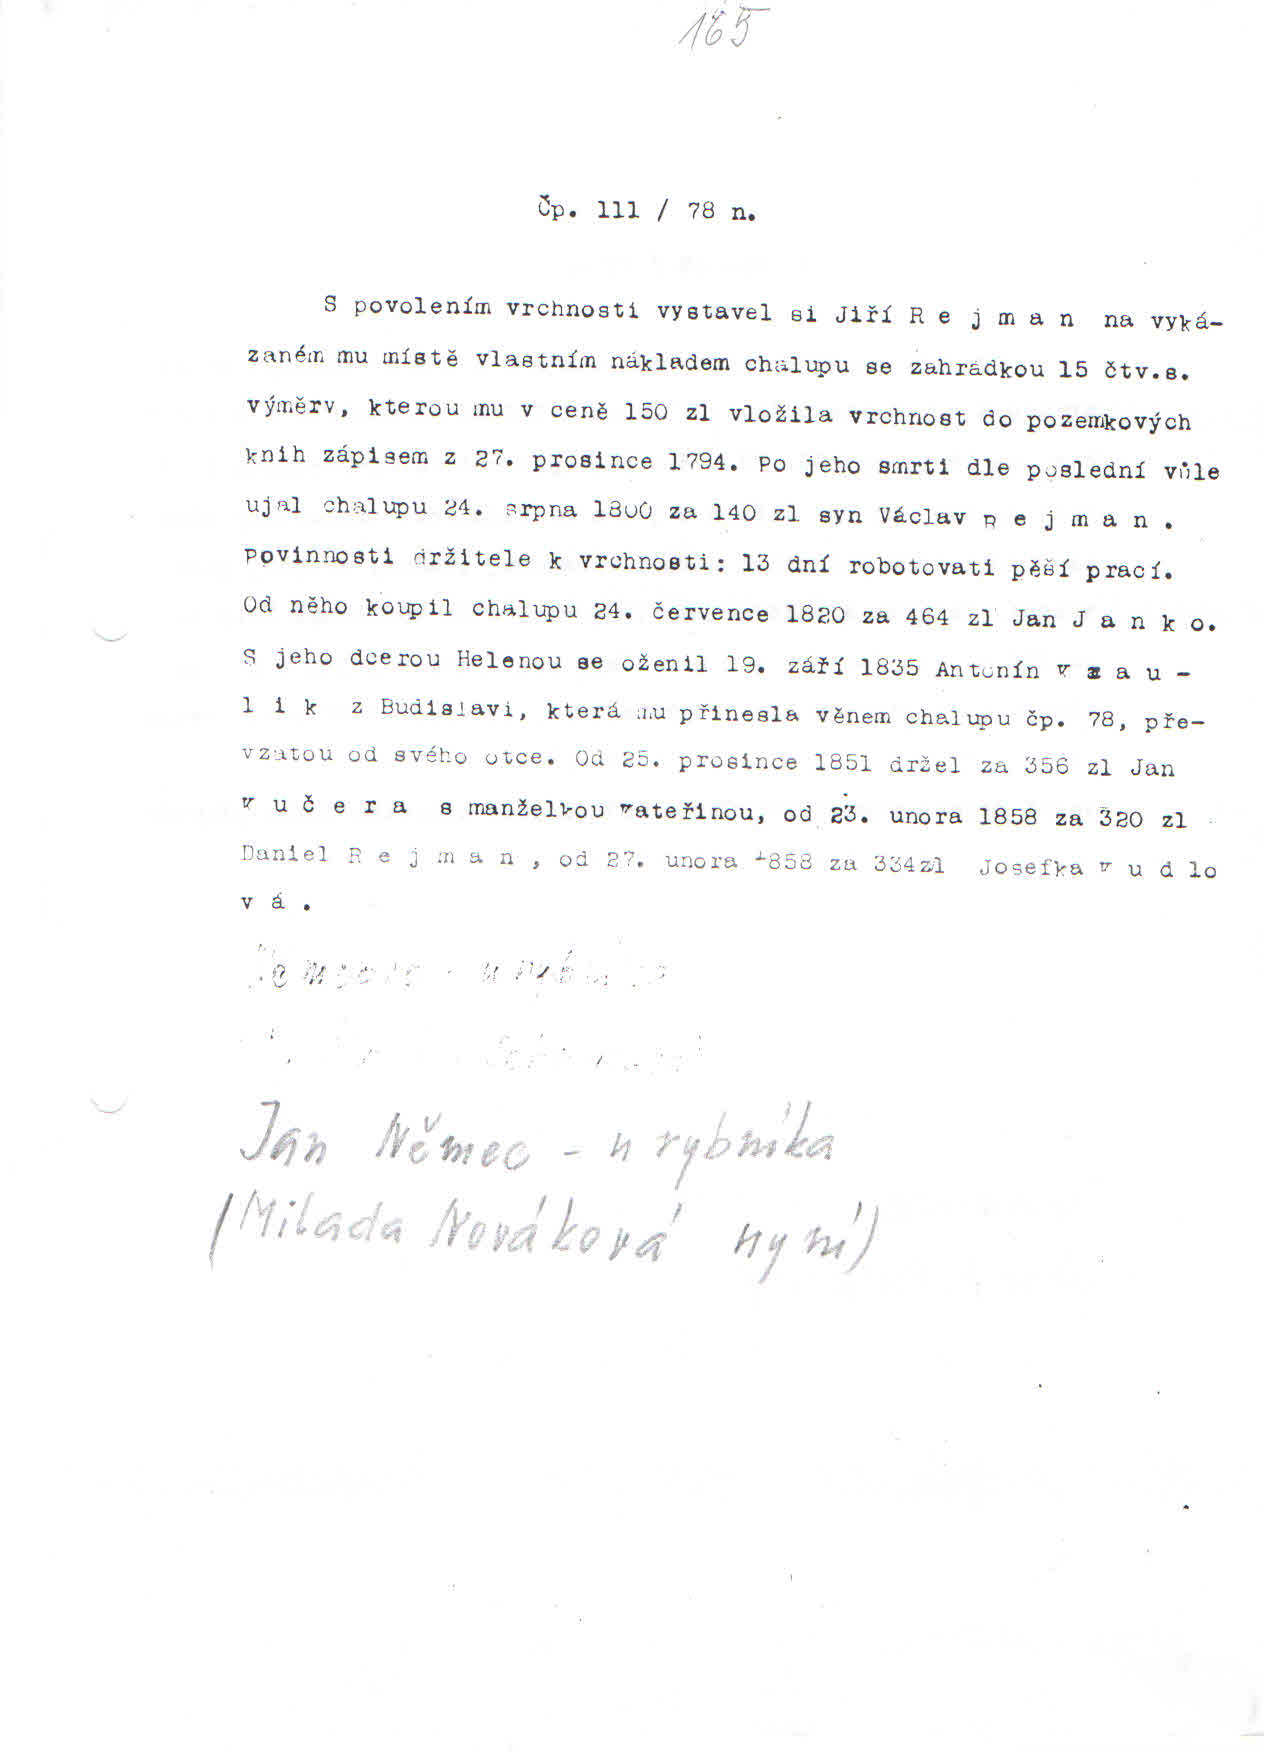 165
Čp. 111 / 78 n.
S povolením vrchnosti vystavel si Jiří R e j m a n na vyká-
zaném mu místě vlastním nákladem chalupu se zahrádkou 15 čtv.s.
výměrv, kterou mu v ceně 150 zl vložila vrchnost do pozemkových
knih zápisem z 27. prosince 1794. Po jeho smrti dle poslední vůle
ujal chalupu 24. srpna 1800 za 140 zl syn Václav R e j m a n .
Povinnosti držitele k vrchnosti: 13 dní robotovati pěší prací.
Od něho koupil chalupu 24. července 1820 za 464 zl Jan J a n k o.
S jeho dcerou Helenou se oženil 19. září 1835 Antonín K z a u -
l i k z Budislavi, která mu přinesla věnem chalupu čp. 78, pře-
vzatou od svého otce. Od 25. prosince 1851 držel za 356 zl Jan
K u č e r a s manželkou Kateřinou, od 23. unora 1858 za 320 zl
Daniel R e j m a n , od 27. unora 1858 za 334zl Josefka K u d lo
v á .
u rybníka
Jan Němec - u rybníka
(Milada Nováková nyní)